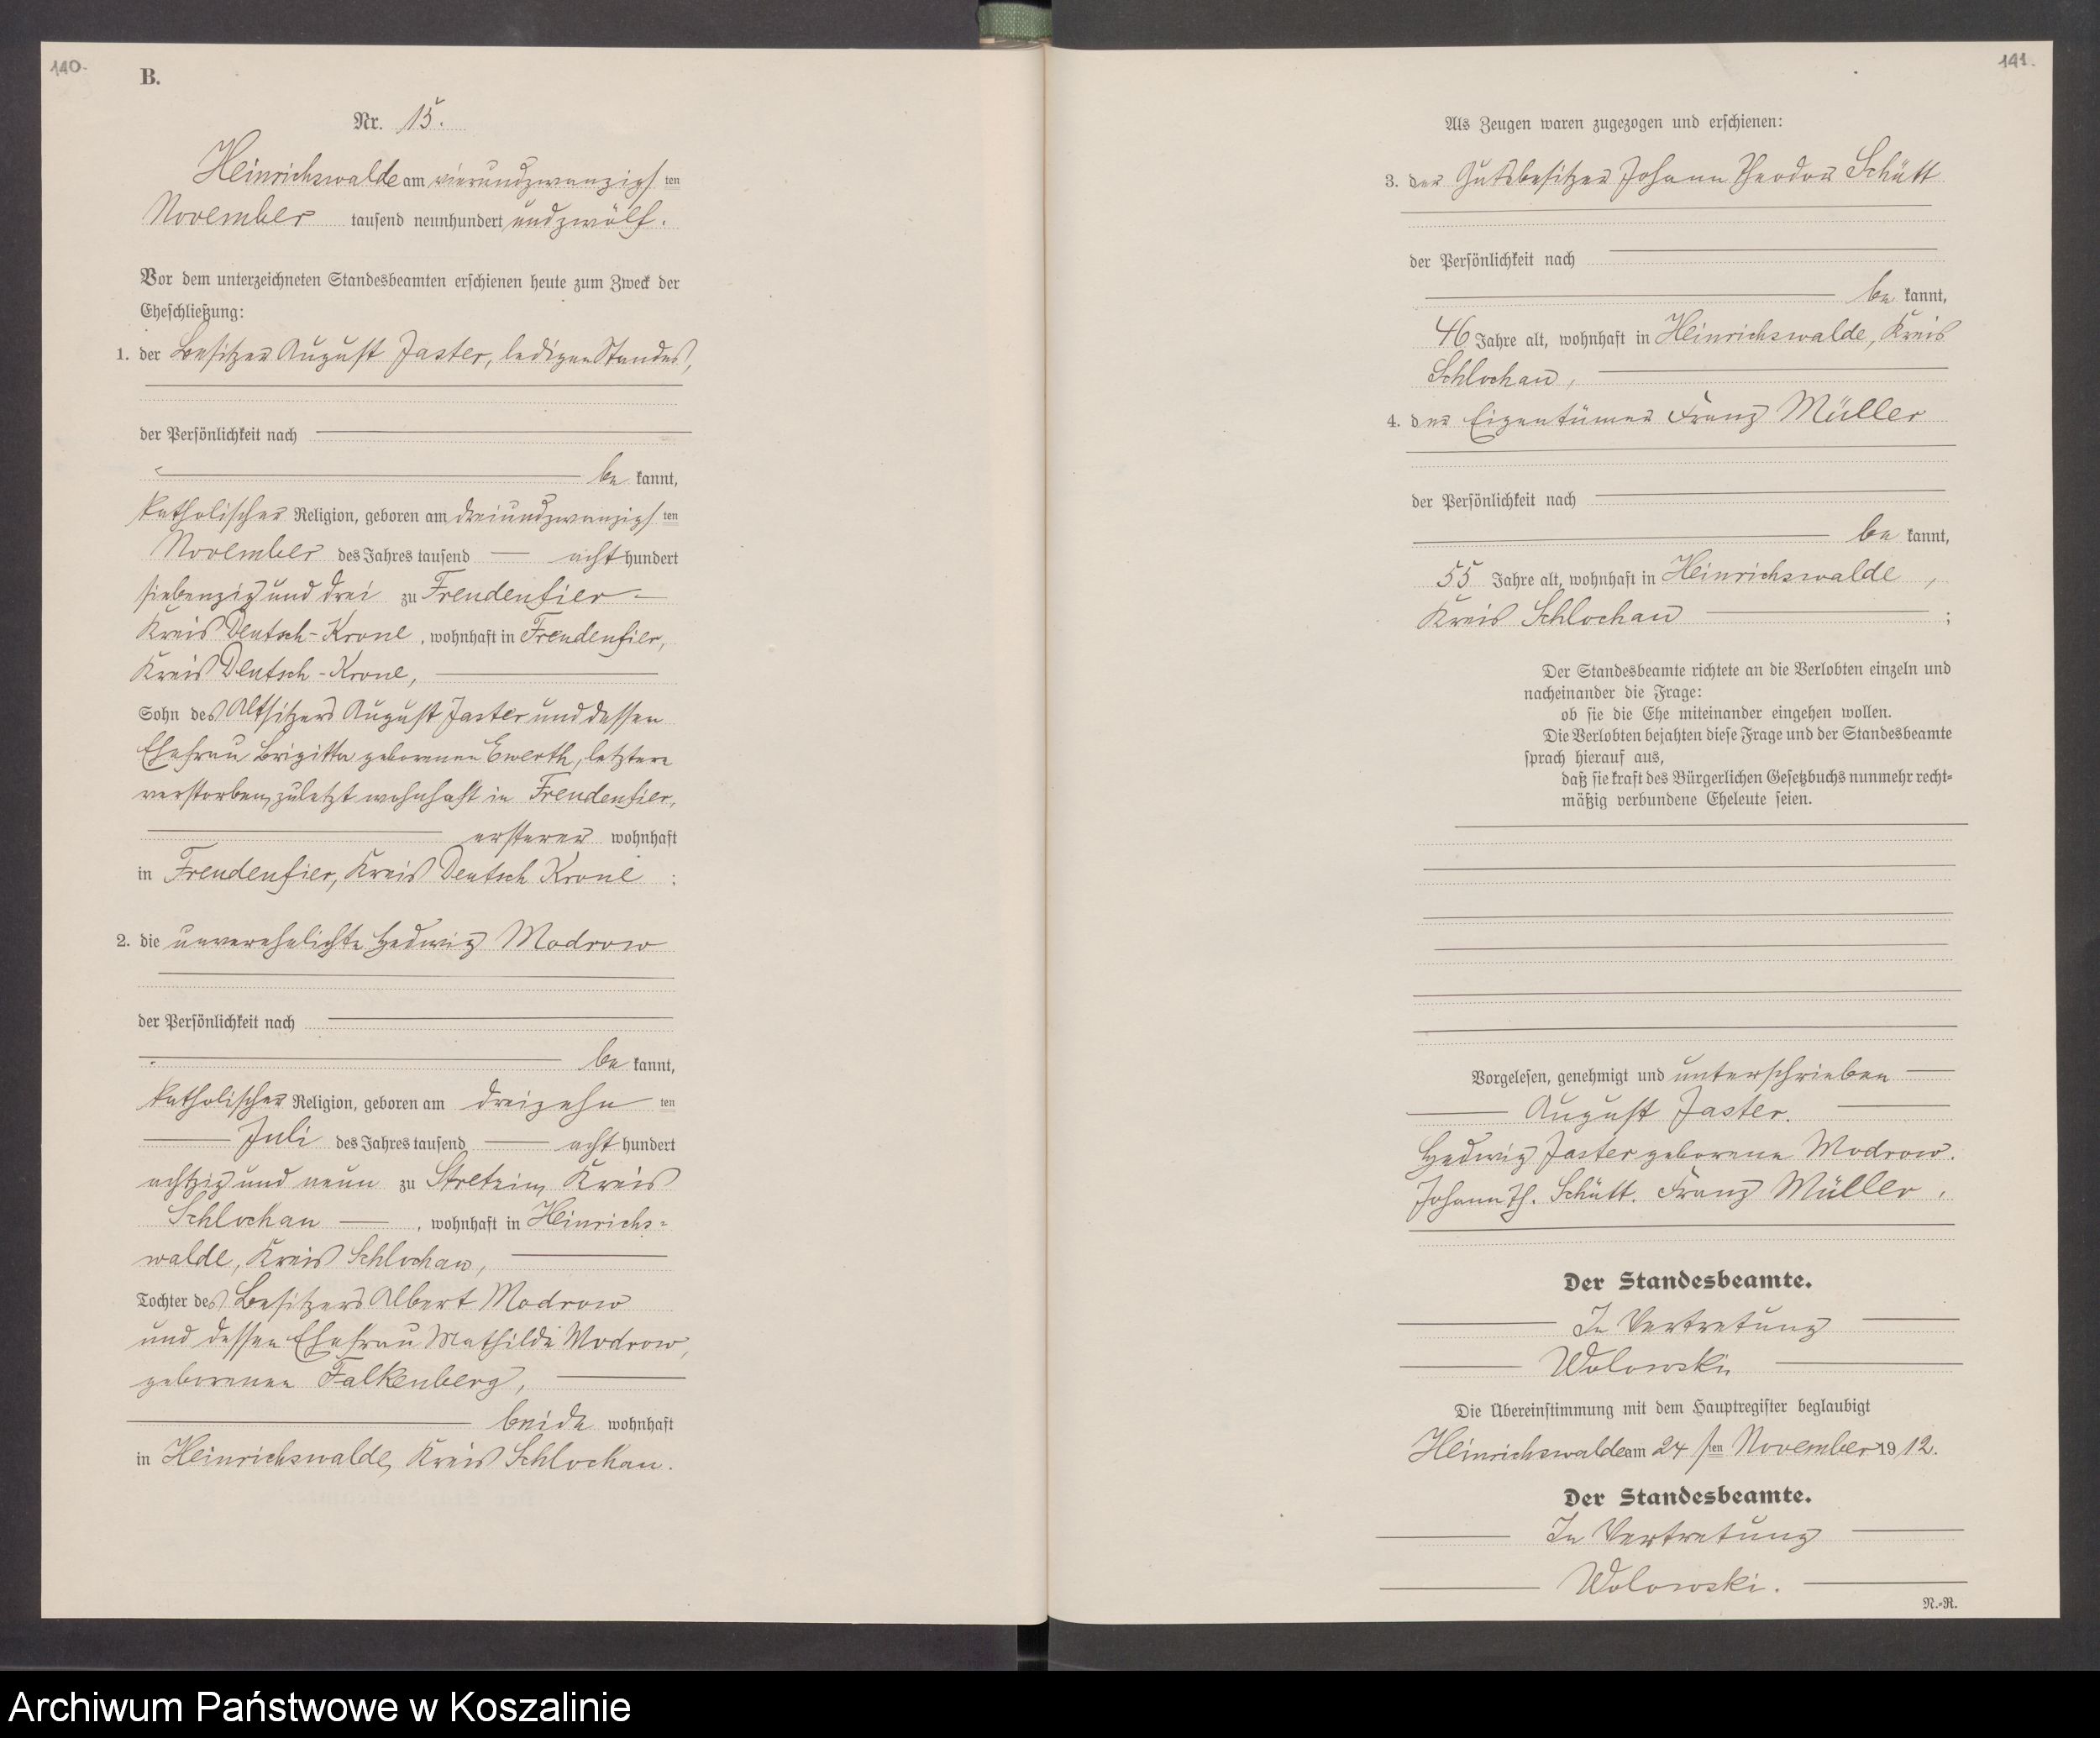 140.
B.
Nr. 15.
Heinrichswalde am vierundzwanzigs ten
November tausend neunhundert undzwölf.
Vor dem unterzeichneten Standesbeamten erschienen heute zum Zweck der
Eheschließung:
1. der Besitzer August Jaster, ledigen Standes,
der Persönlichkeit nach
be kannt,
katholischer Religion, geboren am dreiundzwanzigs ten
November des Jahres tausend acht hundert
siebenzig und drei zu Freudenfier
Kreis Deutsch-Krone, wohnhaft in Freudenfier,
Kreis Deutsch-Krone,
Sohn des Altsitzers August Jaster und dessen
Ehefrau Brigitta geborenen Ewerth, letztere
verstorben, zuletzt wohnhaft in Freudenfier,
ersterer wohnhaft
in Freudenfier, Kreis Deutsch Krone :
2. die unverehelichte Hedwig Modrow
der Persönlichkeit nach
be kannt,
katholischer Religion, geboren am dreizehn ten
Juli des Jahres tausend acht hundert
achtzig und neun zu Stretzin, Kreis
Schlochau , wohnhaft in Heinrichs=
walde, Kreis Schlochau,
Tochter des Besitzers Albert Modrow
und dessen Ehefrau Mathilde Modrow,
geborenen Falkenberg,
beide wohnhaft
in Heinrichswalde, Kreis Schlochau.
141.
Als Zeugen waren zugezogen und erschienen:
3. der Gutsbesitzer Johann Theodor Schütt
der Persönlichkeit nach
be kannt,
46 Jahre alt, wohnhaft in Heinrichswalde, Kreis
Schlochau,
4. der Eigentümer Franz Müller
der Persönlichkeit nach
be kannt,
55 Jahre alt, wohnhaft in Heinrichswalde ,
Kreis Schlochau ;
Der Standesbeamte richtete an die Verlobten einzeln und
nacheinander die Frage:
ob sie die Ehe miteinander eingehen wollen.
Die Verlobten bejahten diese Frage und der Standesbeamte
sprach hierauf aus,
daß sie kraft des Bürgerlichen Gesetzbuchs nunmehr recht=
mäßig verbundene Eheleute seien.
Vorgelesen, genehmigt und unterschrieben
August Jaster.
Hedwig Jaster geborene Modrow.
Johann Th. Schütt. Franz Müller.
Der Standesbeamte.
In Vertretung
Wolowski
Die Übereinstimmung mit dem Hauptregister beglaubigt
Heinrichswalde am 24 sten November 1912.
Der Standesbeamte.
In Vertretung
Wolowski.
N.=R.
Archiwum Państwowe w Koszalinie